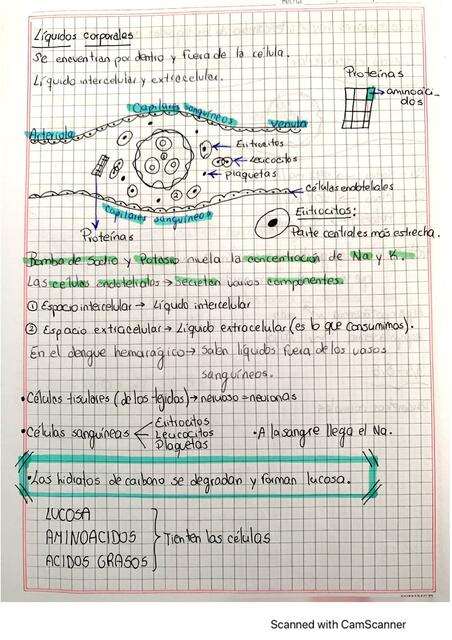 Líquidos corporales
Se encuentran por dentro y fuera de la célula.
Líquido intercelular y extracelular.
Proteínas
aminoáci-
dos
Capilares sanguíneos
Arteriola
venula
Eritrocitos
Leucocitos
plaquetas
células endoteliales
capilares sanguíneos
Proteínas
Eritrocitos:
Parte central es más estrecha.
Bomba de Sodio y Potasio nivela la concentración de Na y K.
Las células endoteliales → secretan varios componentes.
① Espacio intercelular → Líquido intercelular
② Espacio extracelular → Líquido extracelular (es lo que consumimos).
En el dengue hemorágico → Salen líquidos fuera de los vasos
sanguíneos.
• Células tisulares (de los tejidos) → nervioso = neuronas
• Células sanguíneas
Eritrocitos
Leucocitos
Plaquetas
• A la sangre llega el Na.
• Los hidratos de carbono se degradan y forman lucosa.
LUCOSA
AMINOACIDOS
ACIDOS GRASOS
Tienten las células
Scanned with CamScanner